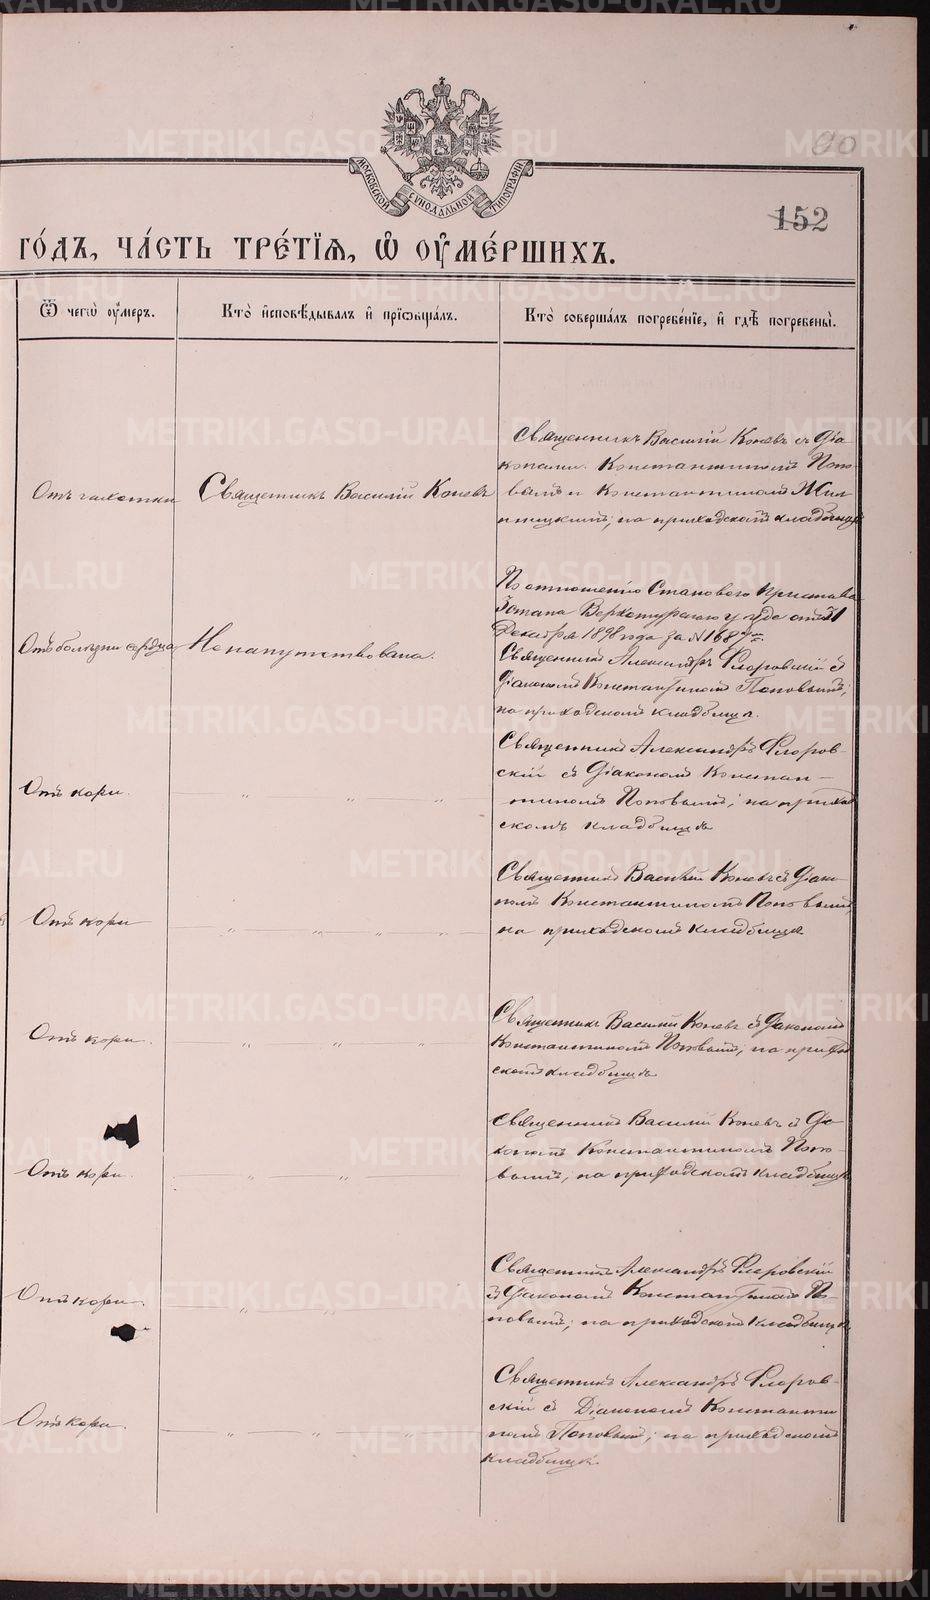 МОСКОВСКОЙ СѴНОДАЛЬНОЙ ТИПОГРАФІИ
90
152
ГО́ДЪ, ЧА́СТЬ ТРЕ́ТІѦ, Ѡ҆ ОУ҆МЕ́РШИХЪ.
Ѿ чегѡ̀ оу҆́меръ.
Кто̀ и҆сповѣ́дывалъ и҆ прїѡбща́лъ.
Кто̀ соверша́лъ погребе́нїе, и҆ гдѣ̀ погребены̀.
Отъ чахотки
Священникъ Василій Коневъ
Священникъ Василій Коневъ съ Діа-
конами: Константиномъ Попо-
вымъ и Константиномъ
на приходскомъ кладбищѣ
Отъ болѣзни сердца
Не напутствована.
По отношенію Становаго Пристава
3 стана Верхотурскаго уѣзда отъ 31
Декабря 1898 года за №1687
Священникъ Александръ Флоровскій съ
Діакономъ Константиномъ Поповымъ;
на приходскомъ кладбищѣ.
Отъ кори.
Священникъ Александръ Флоров-
скій съ Діакономъ Констан-
тиномъ Поповымъ; на приход-
скомъ кладбищѣ
Отъ кори
Священникъ Василій Коневъ съ Діако-
номъ Константиномъ Поповымъ,
на приходскомъ кладбищѣ
Отъ кори.
Священникъ Василій Коневъ съ Діакономъ
Константиномъ Поповымъ; на приход-
скомъ кладбищѣ
Отъ кори.
Священникъ Василій Коневъ съ Діа-
кономъ Константиномъ Попо-
вымъ; на приходскомъ кладбищѣ
Отъ кори.
Священникъ Александръ Флоровскій
съ Діакономъ Константиномъ По-
повымъ; на приходскомъ кладбищѣ
Отъ кори.
Священникъ Александръ Флоров-
скій съ Діакономъ Константи-
номъ Поповымъ; на приходскомъ
кладбищѣ.
METRIKI.GASO-URAL.RU